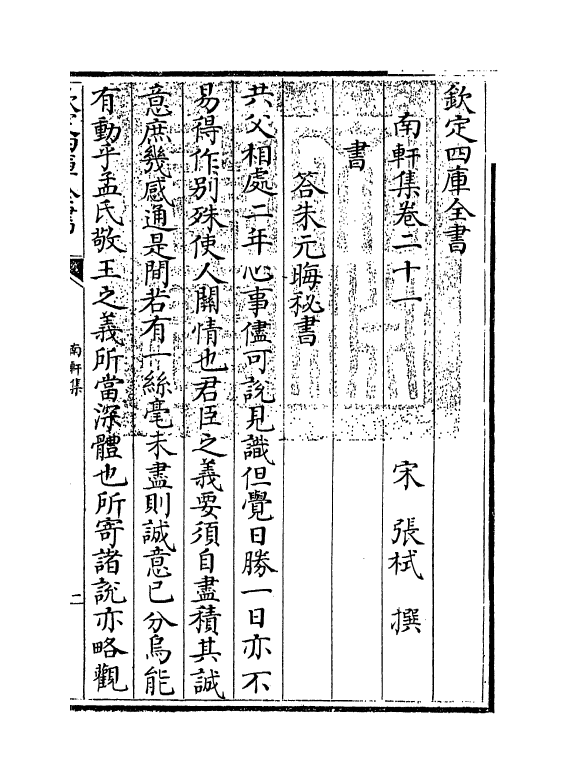 欽定四庫全書
南軒集卷二十一　宋　張栻　撰
書
答朱元晦秘書
共父相處二年心事儘可說見識但覺日勝一日亦不
易得作别殊使人關情也君臣之義要須自盡積其誠
意庶幾感通是間若有一絲毫未盡則誠意已分烏能
有動乎孟氏敬王之義所當深體也所寄諸說亦略觀
南軒集